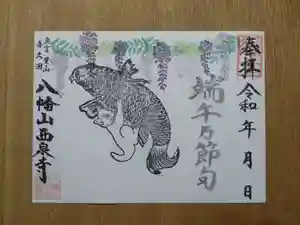 奉拝
令和 年 月 日
端午の節句
八幡山西泉寺